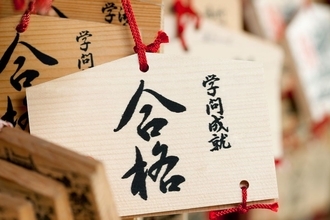 学問成就
合格
学問
合格
学問